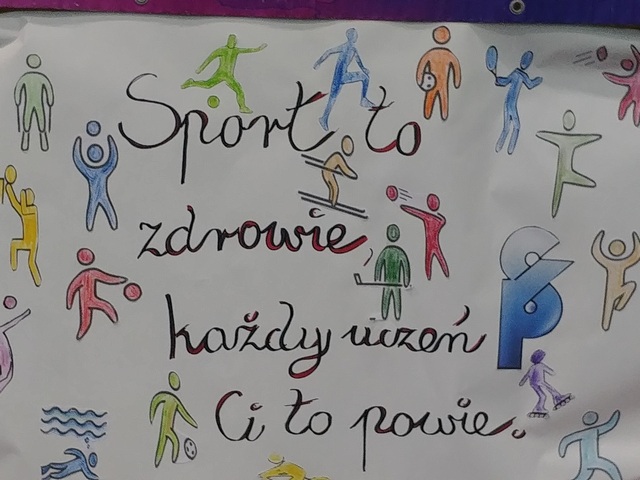 Sport to
zdrowie,
każdy uczeń
Ci to powie.